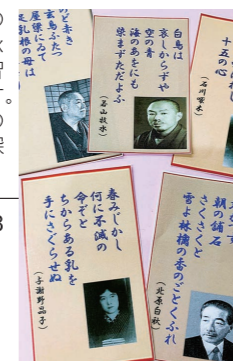 のど赤き
玄鳥ふたつ
屋梁にゐて
足乳根の母は
白鳥は
哀しからずや
空の青
海のあをにも
染まずただよふ
(若山牧水)
十五の心
(石川啄木)
春みじかし
何に不滅の
命ぞと
ちからある乳を
手にさぐらせぬ
(与謝野晶子)
朝の舗石
さくさくと
雪よ林檎の香のごとくふれ
(北原白秋)